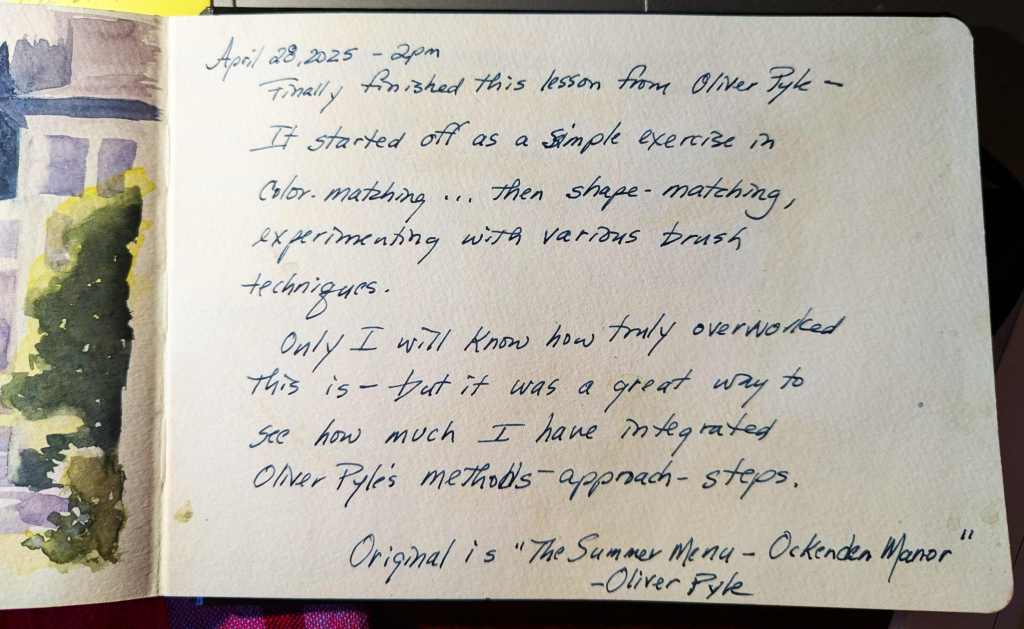 April 28, 2025 - 2pm
Finally finished this lesson from Oliver Pyle -
It started off as a simple exercise in
Color-matching ... then shape-matching,
experimenting with various brush
techniques.
Only I will know how truly overworked
this is - but it was a great way to
see how much I have integrated
Oliver Pyle's methods - approach - steps.
Original is "The Summer Menu - Ockenden Manor"
- Oliver Pyle